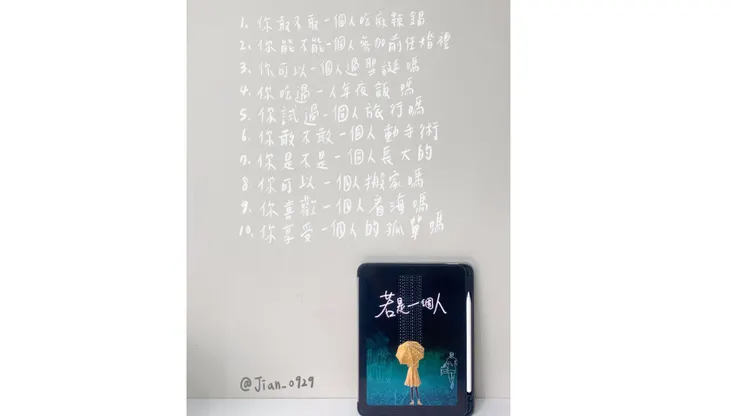 1. 你敢不敢一個人吃麻辣鍋
2. 你能不能一個人參加前任婚禮
3. 你可以一個人過聖誕嗎
4. 你吃過一人年夜飯嗎
5. 你試過一個人旅行嗎
6. 你敢不敢一個人動手術
7. 你是不是一個人長大的
8. 你可以一個人搬家嗎
9. 你喜歡一個人看海嗎
10. 你享受一個人的孤單嗎
若是一個人
@Jian_0929